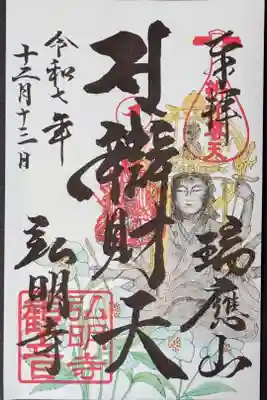 奉拝
瑞應山
辨財天
令和七年
十二月十二日
弘明寺
弘明寺
觀音